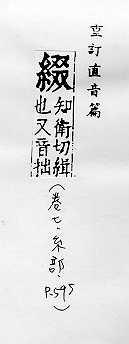 重訂直音篇
綴
知衛切緝
也又音拙
(卷七·糸部·
P.595)